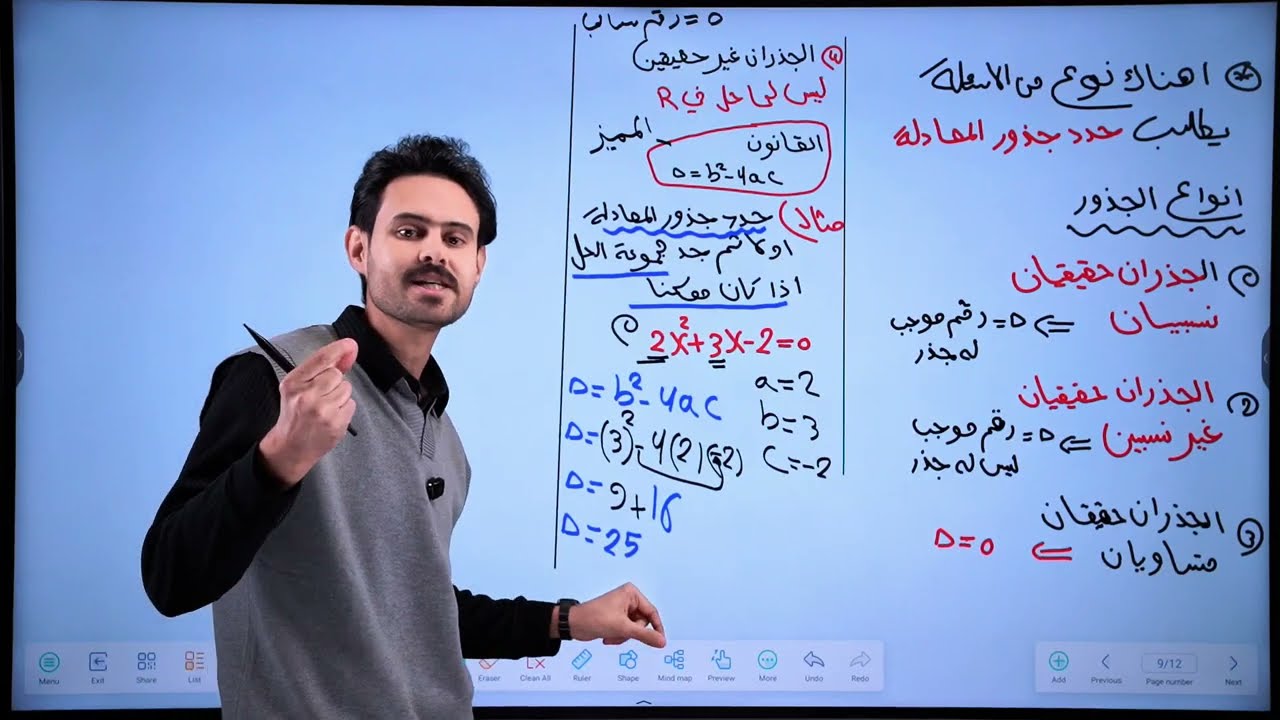 اهناك نوع من الاسئلة
يطلب حدد جذور المعادلة
انواع الجذور
① الجذران حقيقيان
نسبيان ⇐ Δ = رقم موجب
له جذر
② الجذران حقيقيان
غير نسبين ⇐ Δ = رقم موجب
ليس له جذر
③ الجذران حقيقان
متساويان ⇐ Δ=0
Δ = رقم سالب
④ الجذران غير حقيقين
ليس لها حل في R
القانون المميز
Δ=b²-4ac
مثال) حدد جذور المعادلة
اولا ثم جد مجموعة الحل
اذا كان ممكنا
① 2x²+3x-2=0
Δ=b²-4ac
a=2
b=3
c=-2
Δ=(3)²-4(2)(-2)
Δ=9+16
Δ=25
Menu
Exit
Share
List
Eraser
Clean All
Ruler
Shape
Mind map
Preview
More
Undo
Redo
Add
Previous
9/12
Page number
Next